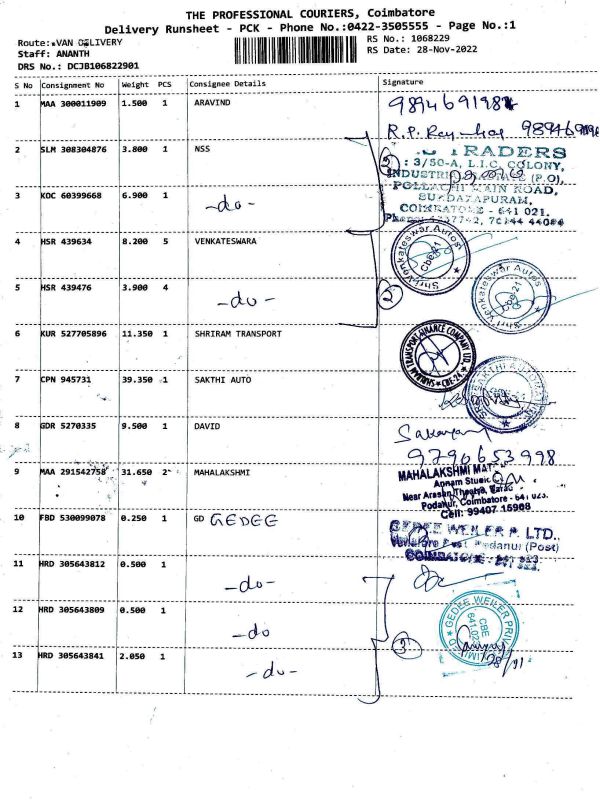 THE PROFESSIONAL COURIERS, Coimbatore
Delivery Runsheet - PCK - Phone No.:0422-3505555 - Page No.:1
Route: VAN DELIVERY
RS No.: 1068229
Staff: ANANTH
RS Date: 28-Nov-2022
DRS No.: DCJB106822901
S No Consignment No Weight PCS Consignee Details Signature
1 MAA 300011909 1.500 1 ARAVIND
2 SLM 308304876 3.800 1 NSS
TRADERS
: 3/50-A, L.I.C. COLONY,
(P.O),
POLLACHI MAIN ROAD,
3 KOC 60399668 6.900 1 -do-
SUNDARAPURAM,
COIMBATORE - 641 021.
4 HSR 439634 8.200 5 VENKATESWARA
Sri Venkateswar Autos
Cbe-21
5 HSR 439476 3.900 4 -do-
2
Sri Venkateswar Autos
Cbe-21
6 KUR 527705896 11.350 1 SHRIRAM TRANSPORT
SHRIRAM TRANSPORT FINANCE COMPANY LTD.
CBE-24
7 CPN 945731 39.350 1 SAKTHI AUTO
8 GDR 5270335 9.500 1 DAVID
9790653998
9 MAA 291542758 31.650 2 MAHALAKSHMI
MAHALAKSHMI
Apnam Studio
Near Arasan Theatre,
Podanur, Coimbatore - 641 023.
Cell: 99407 15968
10 FBD 530099078 0.250 1 GD GEDEE
GEDEE WEILER P. LTD.,
Podanur (Post)
COIMBATORE
11 HRD 305643812 0.500 1 -do-
12 HRD 305643809 0.500 1 -do
GEDEE WEILER PRIVATE LIMITED
CBE
641 023
3
28/11
13 HRD 305643841 2.050 1 -do-